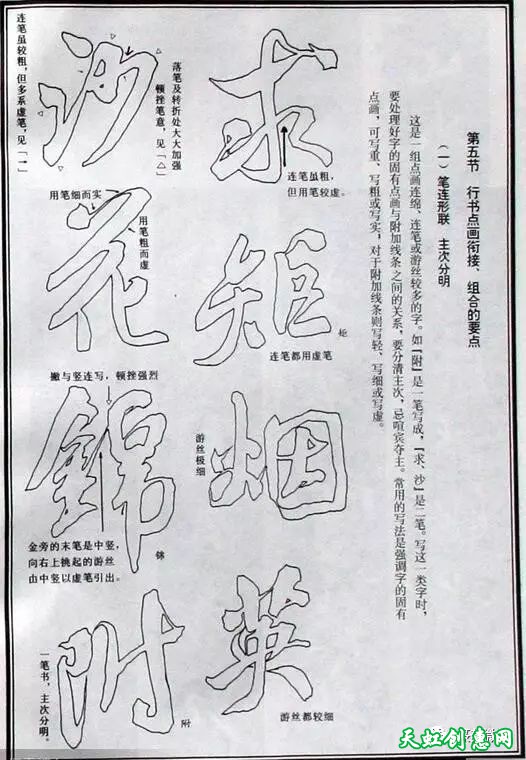 第五节　行书点画衔接、组合的要点
（一）笔连形联　主次分明
这是一组点画连绵、连笔或游丝较多的字。如「附」是一笔写成，「求、沙」是二笔。写这一类字时，
要处理好字的固有点画与附加线条之间的关系，要分清主次，忌喧宾夺主。常用的写法是强调字的固有
点画，可写重、写粗或写实；对于附加线条则写轻、写细或写虚。
求
连笔虽粗，
但用笔较虚。
矩
矩
连笔都用虚笔
烟
游丝极细
英
游丝都较细
沙
落笔及转折处大大加强
顿挫笔意，见「△」
连笔虽较粗，但多系虚笔，见「→」
用笔细而实
花
用笔粗而虚
撇与竖连写，顿挫强烈
锦
锦
金旁的末笔是中竖，
向右上挑起的游丝
由中竖以虚笔引出。
附
附
一笔书，主次分明。
天虹创意网